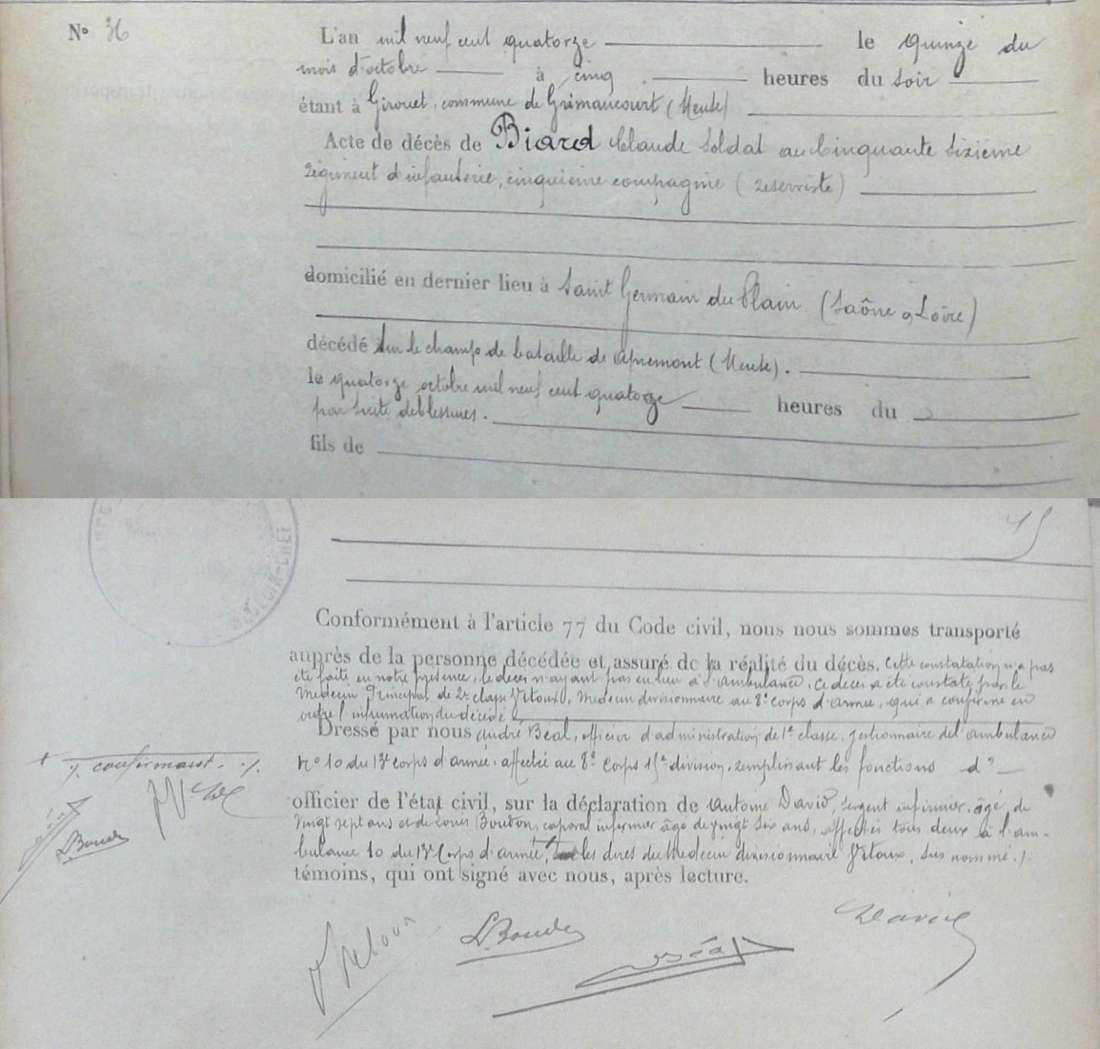 N° 36
L'an mil neuf cent quatorze le quinze du
mois d'octobre à cinq heures du soir
étant à Girouet, commune de Grimaucourt (Meuse)
Acte de décès de Biard Claude Soldat au Cinquante sixième
régiment d'infanterie, cinquième compagnie (réserviste)
domicilié en dernier lieu à Saint Germain du Plain (Saône & Loire)
décédé sur le champ de bataille de Apremont (Meuse).
le quatorze octobre mil neuf cent quatorze heures du
par suite de blessures.
fils de
15
Conformément à l'article 77 du Code civil, nous nous sommes transporté
auprès de la personne décédée et assuré de la réalité du décès. Cette constatation n'a pas
été faite en notre présence, le décès n'ayant pas eu lieu à l'ambulance. Ce décès a été constaté par le
Médecin Principal de 2e classe Vitoux, Médecin divisionnaire au 8e corps d'armée, qui a confirmé en
outre l'inhumation du décédé
Dressé par nous André Béal, officier d'administration de 1e classe, gestionnaire de l'ambulance
N° 10 du 13e corps d'armée, affectée au 8e Corps 15e division, remplissant les fonctions d'
officier de l'état civil, sur la déclaration de Antoine David, sergent infirmier, âgé de
vingt sept ans et de Louis Boudon, caporal infirmier âgé de vingt six ans, affectés tous deux à l'am-
bulance 10 du 13e Corps d'armée, les dires du Médecin divisionnaire Vitoux, sus nommé ./.
témoins, qui ont signé avec nous, après lecture.
+ /. confirmant ./.
Béal
L Boudon
Vitoux
L. Boudon
Béal
David